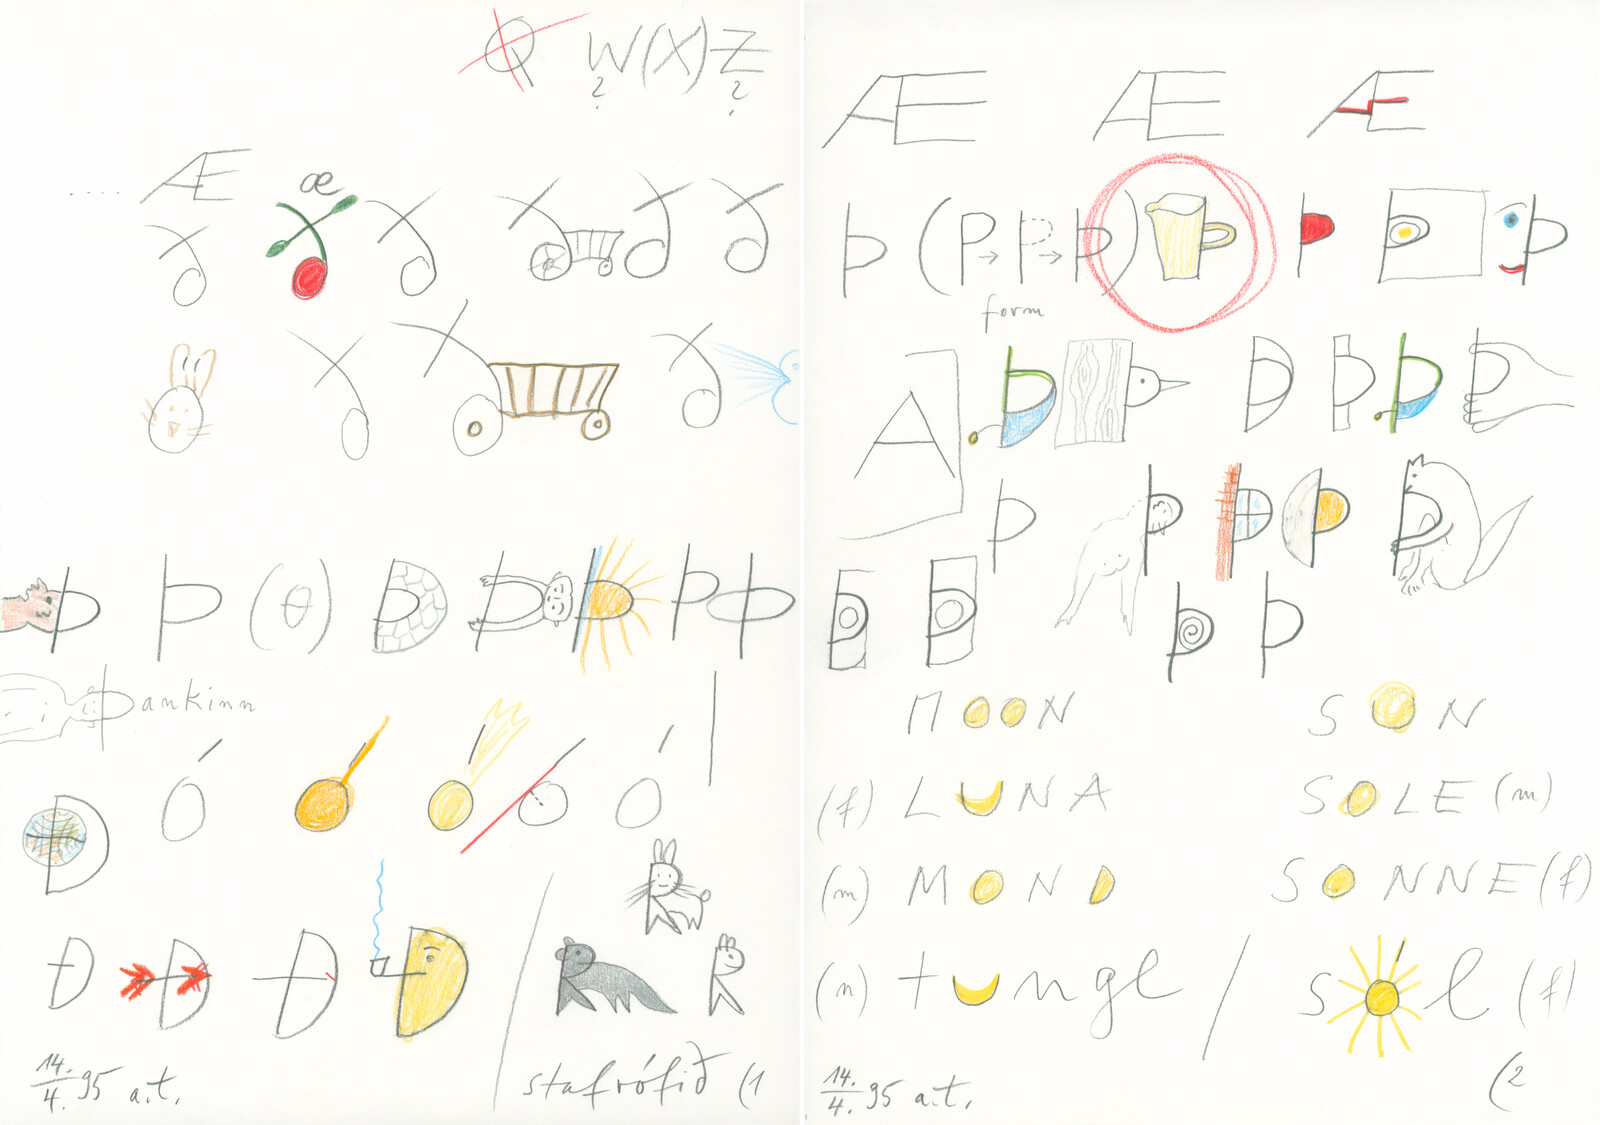 Q W (X) Z
? ?
.... Æ æ
ð ð ð ð ð
ð ð
Þ Þ (Θ) Þ Þ Þ Þ Þ
Þankinn
Ó Ó Ó Ó Ó
Ð
Ð Ð Ð Ð
R R R
14./4. 95 a.t.
stafrófið (1
Æ Æ Æ
Þ (P → P → Þ) Þ Þ Þ Þ
form
A Þ Þ Þ Þ Þ Þ
Þ Þ Þ Þ Þ
Þ Þ Þ Þ
MOON SON
(f) LUNA SOLE (m)
(m) MOND SONNE (f)
(n) tungl / sól (f)
14./4. 95 a.t.
(2